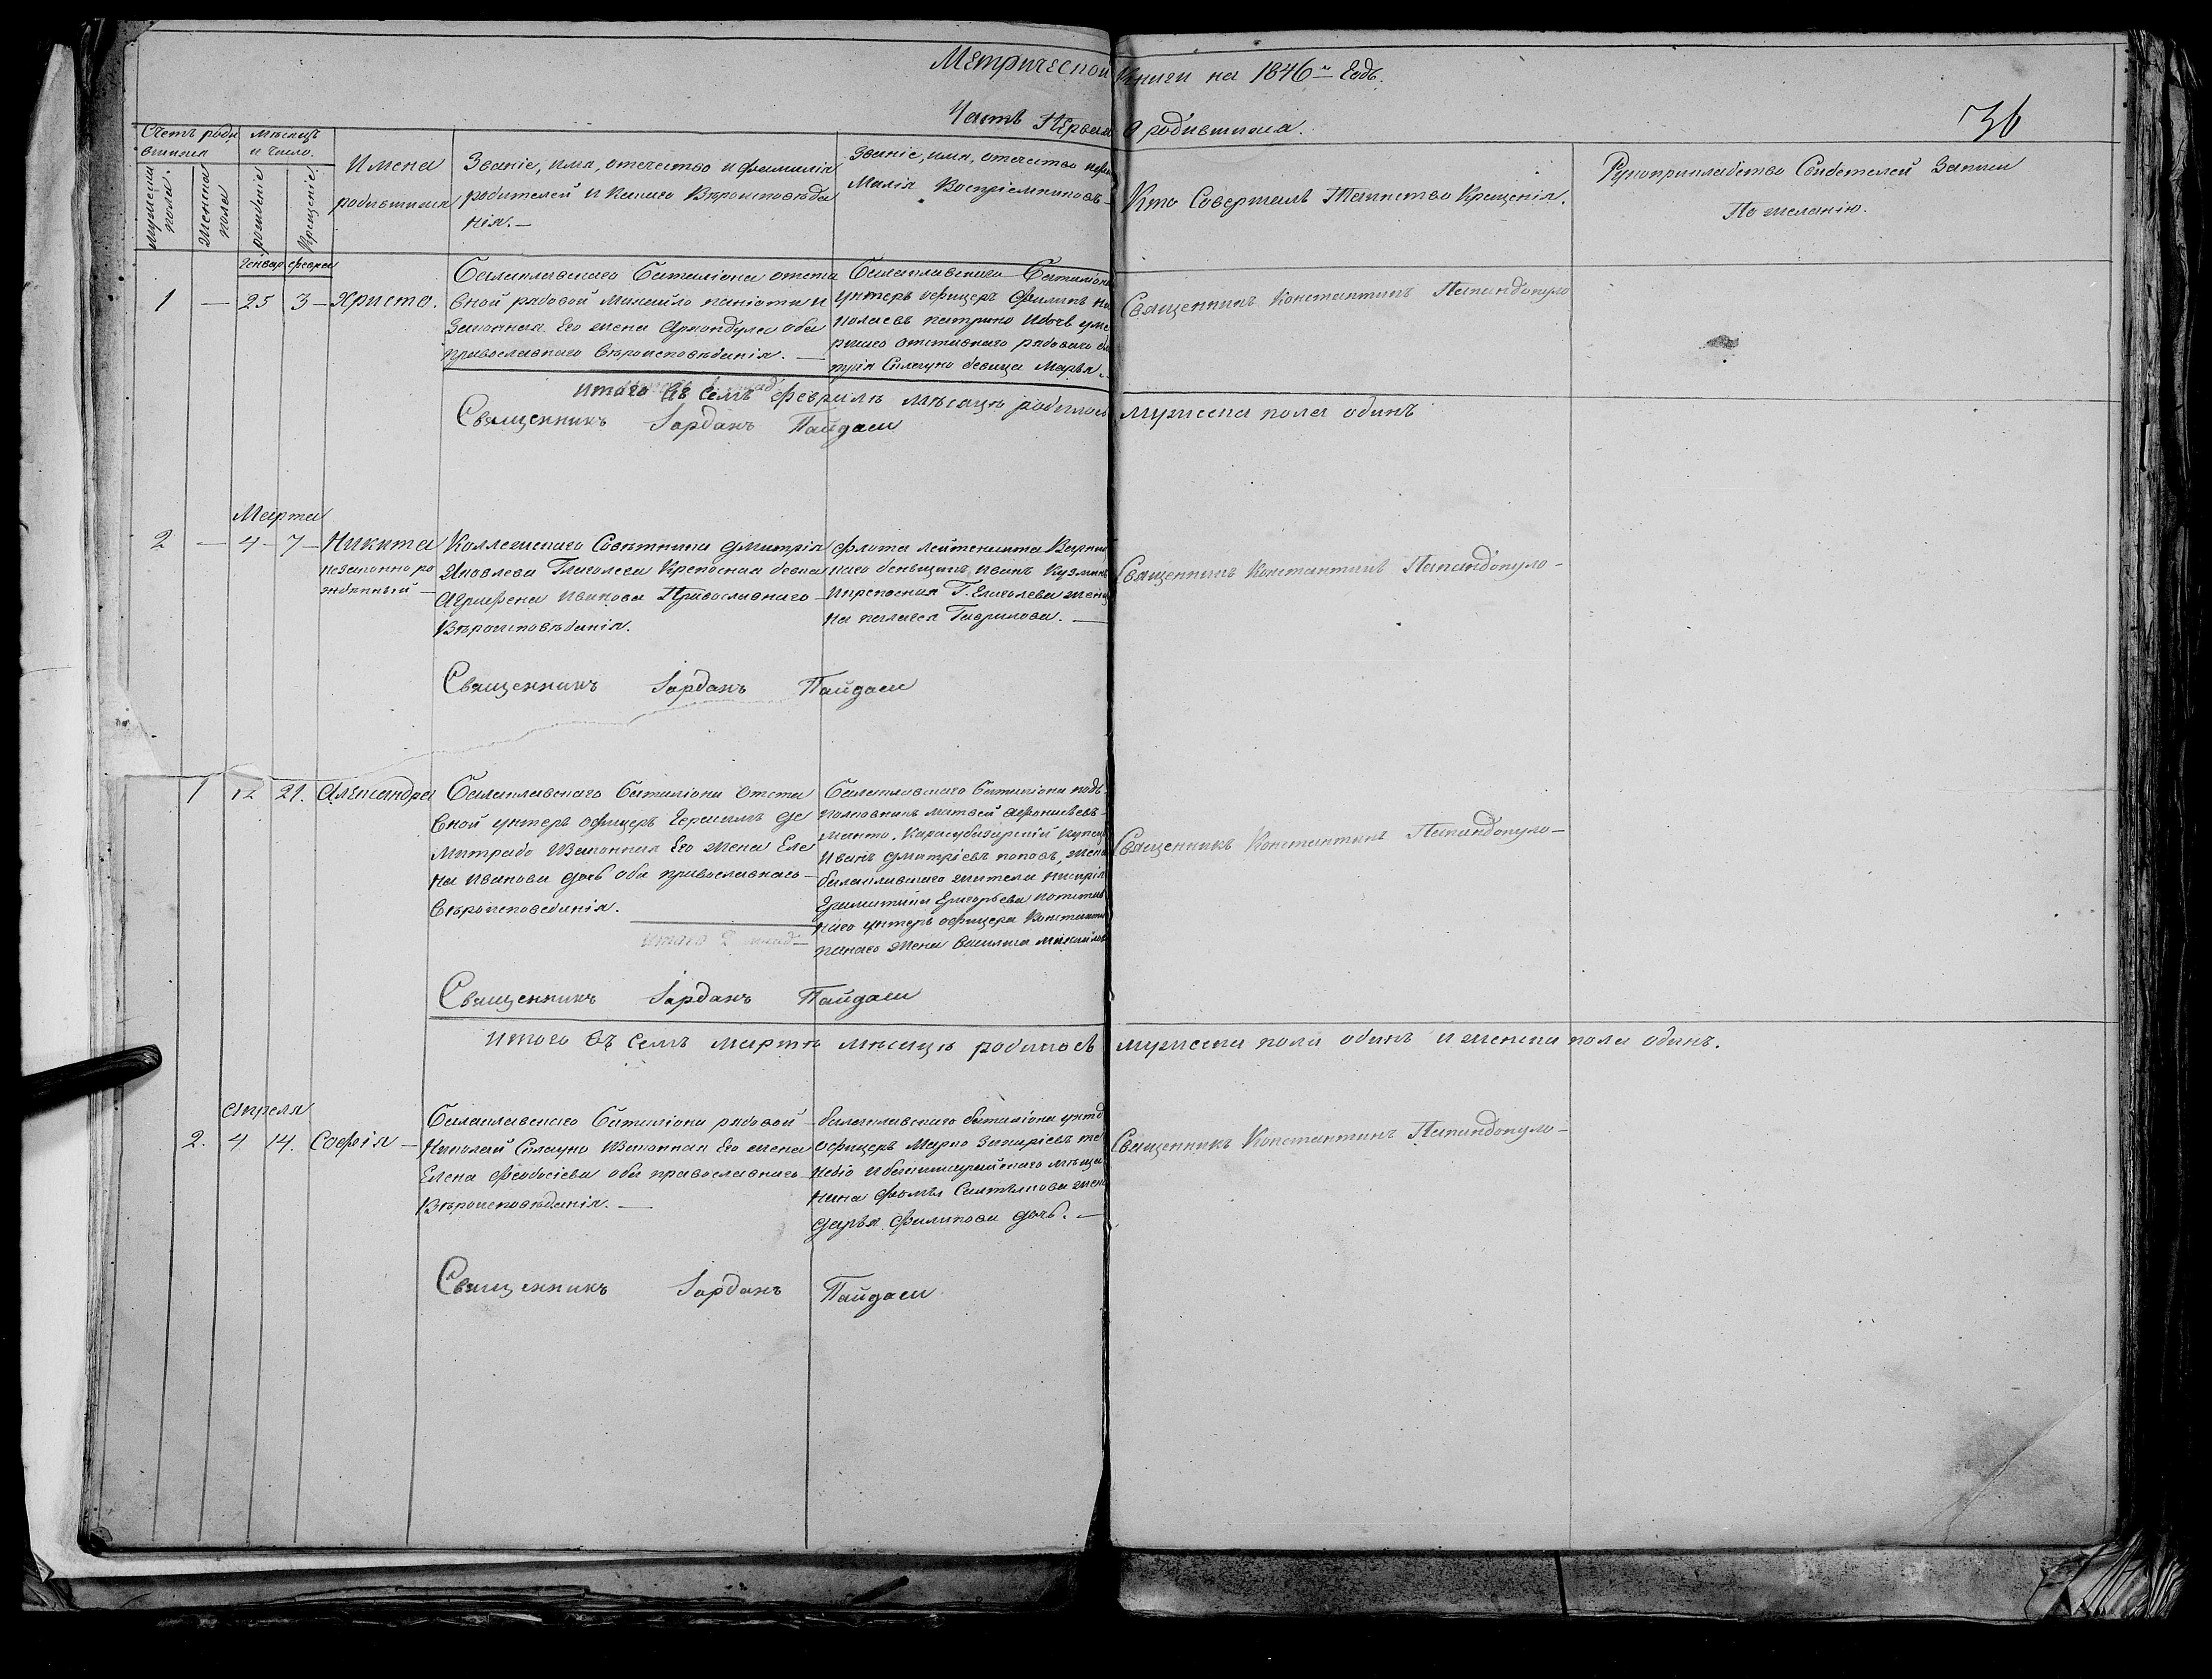 Метрической Книги на 1846й Годъ.
Часть Первая О родившихся.
36
Счетъ роди
вшихся
Мѣсяцъ
и число.
мужеска
пола.
Женска
пола
рожденіе
Крещеніе
Имена
родившихся
Званіе, имя, отечество и фамилія
родителей и Какаго Вѣроисповѣда
нія.—
Званіе, имя, отечество и фа
Милія Воспріемниковъ—
Кто Совершалъ Таинство Крещенія.
Рукоприкладство Свидетелей Записи
По желанію.
Генвар феврал
1 — 25 3 — Христо.
Балаклавскаго Баталіона отста
вной рядовой Михайло паніоти и
Законная Его жена обa
православнаго вѣроисповѣданія. —
Балаклавскаго Баталіона
унтеръ офицеръ Филипъ Ни
колаевъ и дочь уме
ршаго отставнаго рядоваго
девица Марья.
Священникъ Константинъ Папандопуло
Итого въ Семъ Февралѣ мѣсяцѣ родилось мужеска пола одинъ
Священникъ Іорданъ Пайдаси
Марта
2 — 4 — 7 — Никита
незаконно ро
жденный —
Коллежскаго Советника Дмитрія
Яковлева Глаголева Крепосная девка
Агрифена Иванова Православнаго —
Вѣроисповѣданія.
Флота лейтенанта
деньщикъ иванъ Кузминъ
и крепосная Г. Глаголева жен
Гаврилова. —
Священникъ Константинъ Папандопуло —
Священникъ Іорданъ Пайдаси
1 12 21. Александра
Балаклавскаго Баталіона Отста
вной унтеръ офицеръ Герасимъ Де
Митраки Изаконная Его жена Еле
на Иванова дочь оба православнаго —
Вѣроисповеданія.
Балаклавскаго Баталіона подъ
полковникъ Матвей Афонасьевъ
Манто, Карасубазарскій купецъ
Иванъ Дмитріевъ поповъ, жена
балаклавскаго жителя
Григорьева
наго унтеръ офицера Константина
жена Василиса михайлова
Священникъ Константинъ Папандопуло —
итого 2 —
Священникъ Іорданъ Пайдаси
Итого Въ Семъ мартѣ мѣсяцѣ родилось мужеска пола одинъ и женска пола одинъ.
Апреля
2. 4 14. Софія —
Балаклавскаго Баталіона рядовой —
Николай Изаконная Его жена
Елена Феодосіева оба православнаго —
Вѣроисповѣданія. —
балаклавскаго баталіона унтъ
Офицеръ Марко Захаріевъ
Ибахчисарайскаго мѣща
нина Фомы жена
Дарья Филипова дочь. —
Священникъ Константинъ Папандопуло —
Священникъ Іорданъ Пайдаси